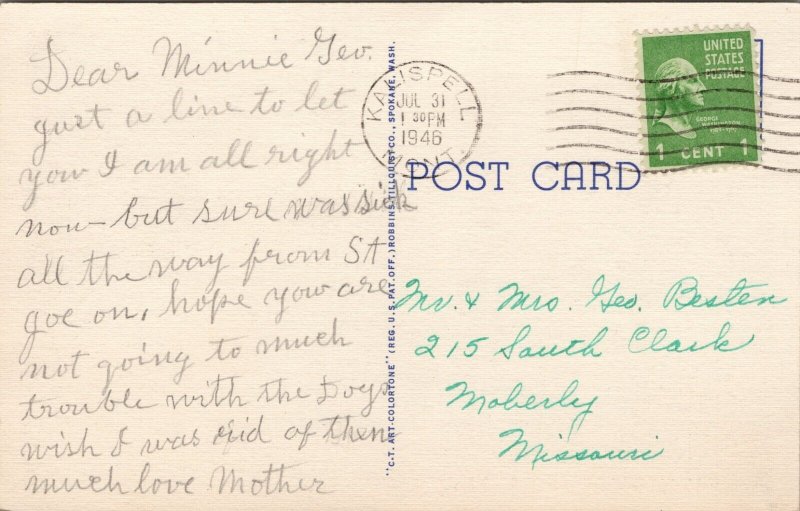 Dear Minnie Geo.
just a line to let
you I am all right
now - but sure was sick
all the way from St
goe on, hope you are
not going to much
trouble with the Dogs
wish I was rid of them
much love Mother
"C.T. ART-COLORTONE" (REG. U.S. PAT. OFF.) ROBBINS-TILLQUIST CO., SPOKANE, WASH.
KALISPELL
JUL 31
1 30 PM
1946
MONT.
UNITED
STATES
POSTAGE
GEORGE
WASHINGTON
1 CENT 1
POST CARD
Mr. & Mrs. Geo. Besten
215 South Clark
Moberly
Missouri